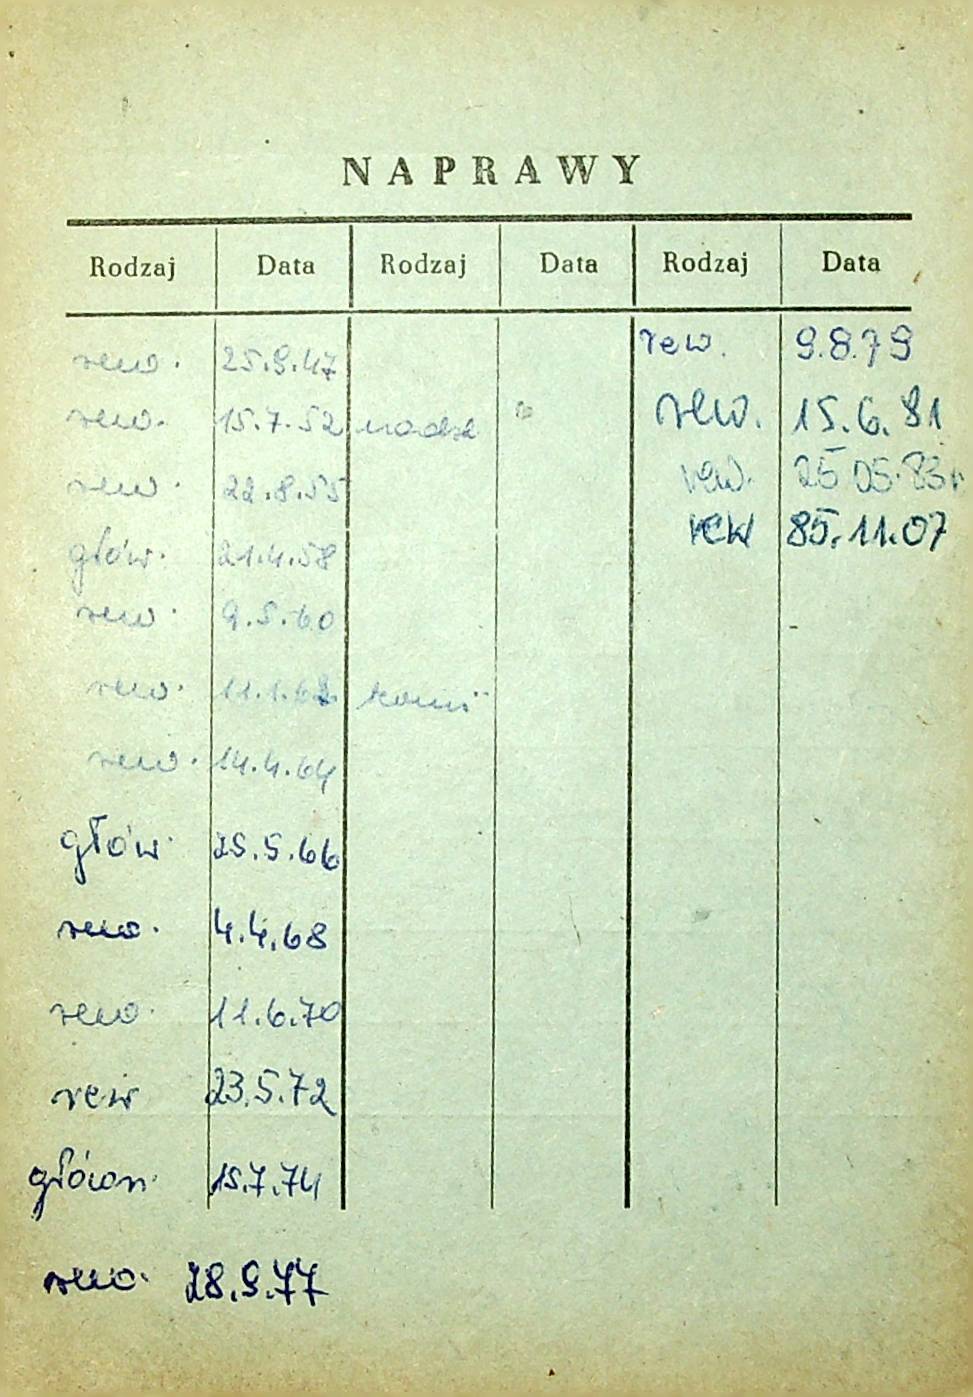 NAPRAWY
Rodzaj Data Rodzaj Data Rodzaj Data
rew. 25.9.47 rew. 9.8.79
rew. 15.7.52 rew. 15.6.81
rew. 22.8.55 rew. 25 05.83r
głów. 21.4.58 rew 85.11.07
rew. 9.5.60
rew. 11.1.62
rew. 14.4.64
głów. 25.5.66
rew. 4.4.68
rew. 11.6.70
rew 23.5.72
główn. 15.7.74
rew. 28.9.77